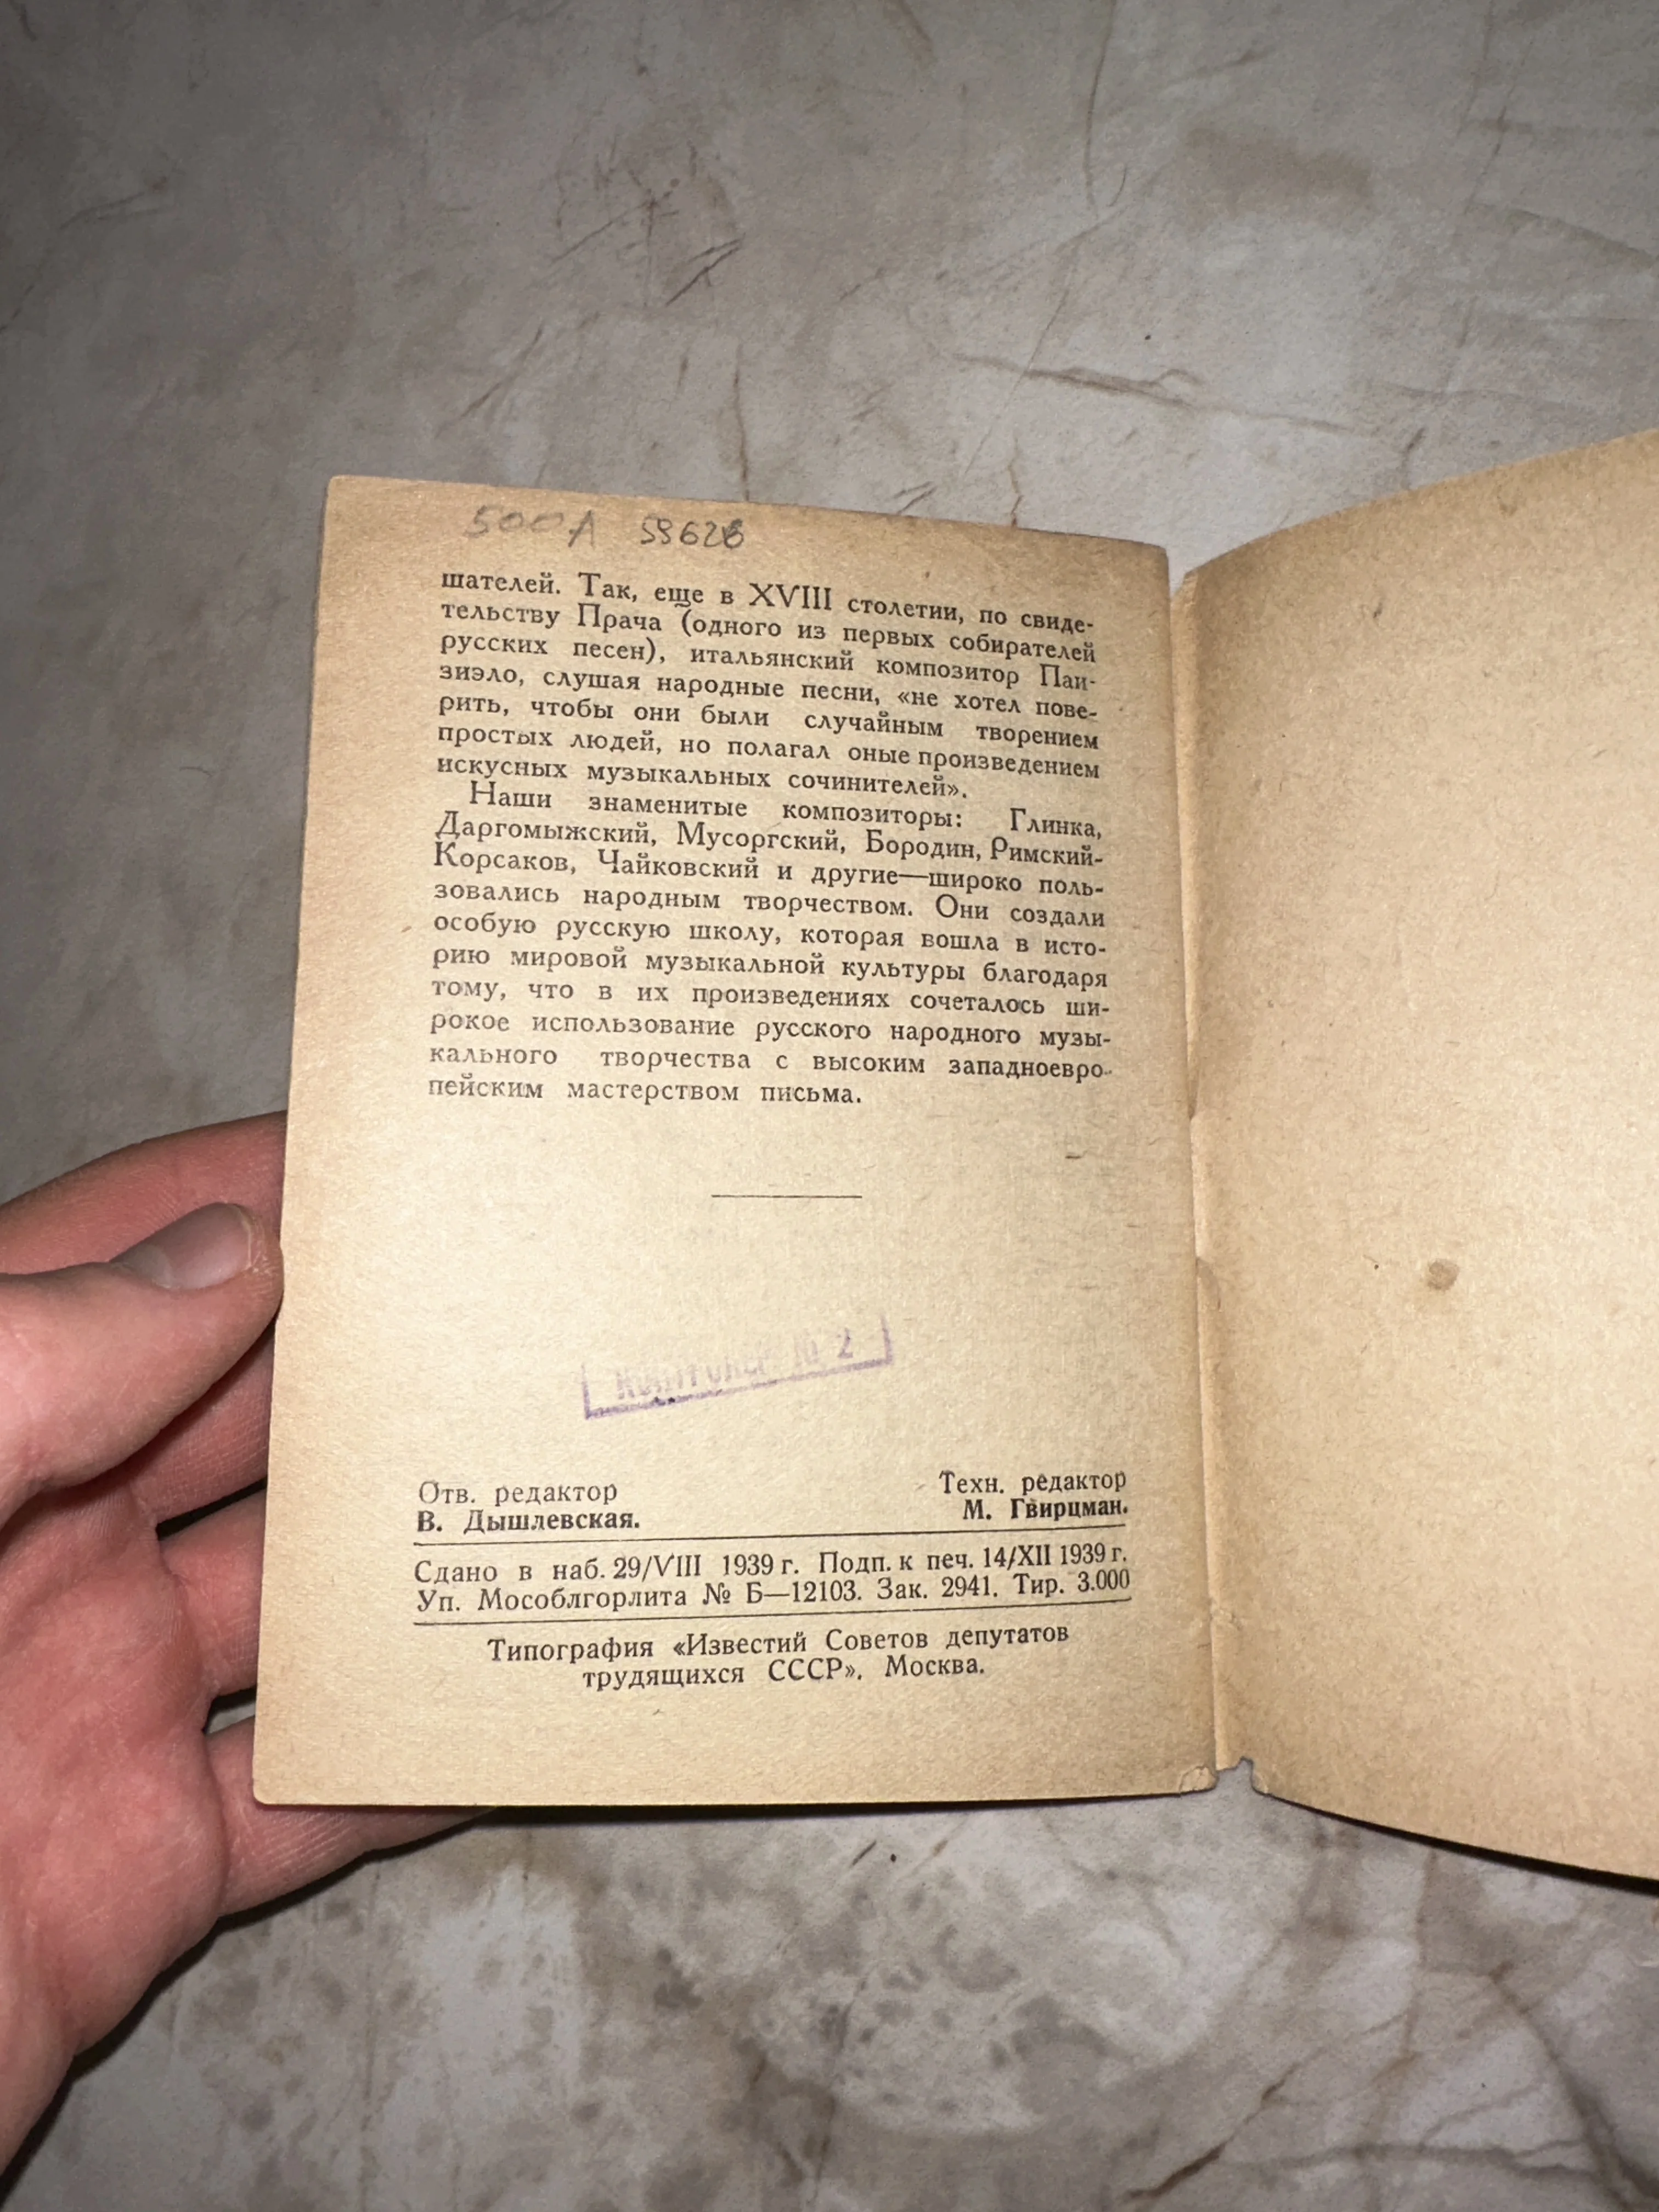 500А 59626
шателей. Так, еще в XVIII столетии, по свиде-
тельству Прача (одного из первых собирателей
русских песен), итальянский композитор Паи-
зиэло, слушая народные песни, «не хотел пове-
рить, чтобы они были случайным творением
простых людей, но полагал оные произведением
искусных музыкальных сочинителей».
Наши знаменитые композиторы: Глинка,
Даргомыжский, Мусоргский, Бородин, Римский-
Корсаков, Чайковский и другие—широко поль-
зовались народным творчеством. Они создали
особую русскую школу, которая вошла в исто-
рию мировой музыкальной культуры благодаря
тому, что в их произведениях сочеталось ши-
рокое использование русского народного музы-
кального творчества с высоким западноевро-
пейским мастерством письма.
Контролер № 2
Отв. редактор
В. Дышлевская.
Техн. редактор
М. Гвирцман.
Сдано в наб. 29/VIII 1939 г. Подп. к печ. 14/XII 1939 г.
Уп. Мособлгорлита № Б—12103. Зак. 2941. Тир. 3.000
Типография «Известий Советов депутатов
трудящихся СССР». Москва.